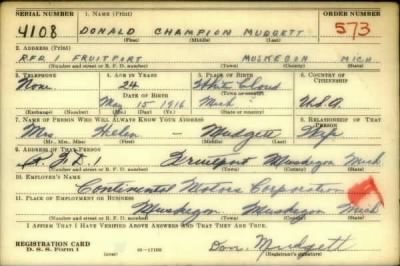 SERIAL NUMBER 1. NAME (Print) ORDER NUMBER
4108 DONALD CHAMPION MUDGETT 573
(First) (Middle) (Last)
2. ADDRESS (Print)
RFD 1 FRUITPORT MUSKEGON MICH
(Number and street or R. F. D. number) (Town) (County) (State)
3. TELEPHONE 4. AGE IN YEARS 5. PLACE OF BIRTH 6. COUNTRY OF CITIZENSHIP
None 24 White Cloud
DATE OF BIRTH (Town or county)
May 15 1916 Mich U.S.A
(Exchange) (Number) (Mo.) (Day) (Yr.) (State or country)
7. NAME OF PERSON WHO WILL ALWAYS KNOW YOUR ADDRESS 8. RELATIONSHIP OF THAT PERSON
Mrs Helen — Mudgett Wife
(Mr., Mrs., Miss) (First) (Middle) (Last)
9. ADDRESS OF THAT PERSON
R.F.D. 1 Fruitport Muskegon Mich
(Number and street or R. F. D. number) (Town) (County) (State)
10. EMPLOYER'S NAME
Continental Motors Corporation
11. PLACE OF EMPLOYMENT OR BUSINESS
Muskegon Muskegon Mich
(Number and street or R. F. D. number) (Town) (County) (State)
I AFFIRM THAT I HAVE VERIFIED ABOVE ANSWERS AND THAT THEY ARE TRUE.
REGISTRATION CARD
D. S. S. Form 1 16—17105 Don. Mudgett
(Registrant's signature)